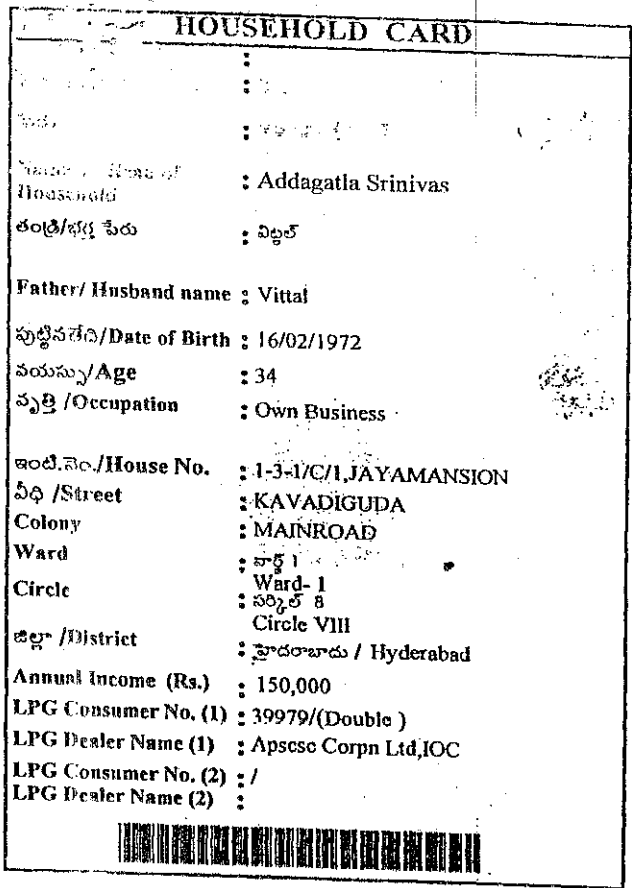 HOUSEHOLD CARD
Name of Head of
Household : Addagatla Srinivas
తండ్రి/భర్త పేరు : విట్టల్
Father/ Husband name : Vittal
పుట్టినతేది/Date of Birth : 16/02/1972
వయస్సు/Age : 34
వృత్తి /Occupation : Own Business
ఇంటి.నెం./House No. : 1-3-1/C/1,JAYAMANSION
వీధి /Street : KAVADIGUDA
Colony : MAINROAD
Ward : వార్డ్ 1
Ward- 1
Circle : సర్కిల్ 8
Circle VIII
జిల్లా /District : హైదరాబాదు / Hyderabad
Annual Income (Rs.) : 150,000
LPG Consumer No. (1) : 39979/(Double )
LPG Dealer Name (1) : Apscsc Corpn Ltd,IOC
LPG Consumer No. (2) : /
LPG Dealer Name (2) :